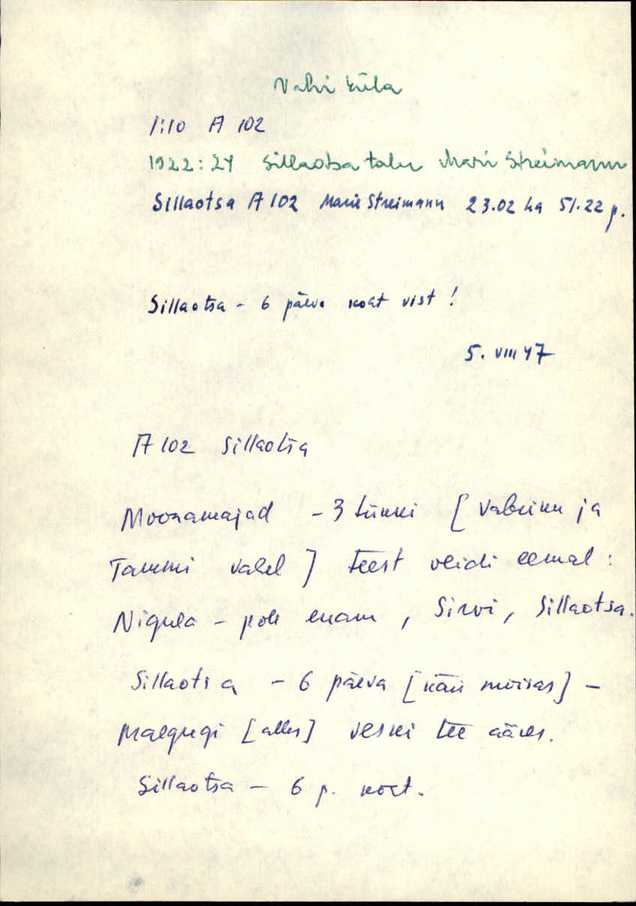 Vahi küla
1:10 A 102
1922:24 Sillaotsa talu Mari Streimann
Sillaotsa A 102 Marie Streimann 23.02 ha 51.22 p.
Sillaotsa - 6 päeva koht vist!
5. VIII 47
A 102 Sillaotsa
Moonamajad - 3 tükki [ ja
Tammi vahel] teest veidi eemal:
Nigula - pole enam, Sirvi, Sillaotsa.
Sillaotsa - 6 päeva [käis mõisas] -
praegugi [alles] veski tee ääres.
Sillaotsa - 6 p. koht.